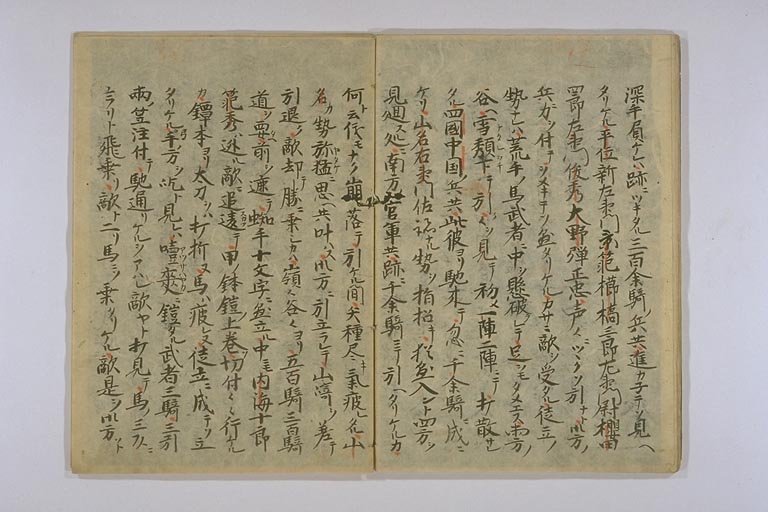 深手負ケレハ跡ニツヽキタル三百余騎ノ兵共進カ子テソ見ヘ
タリケル平位新左衛門 範櫛橋三郎左衛門尉櫻田
四郎左衛門俊秀大野弾正忠声〻ニツヽクソ引ナト云
兵力ヲ付テ ケルカサニ敵ヲ受タル徒立ノ
勢ナレハ荒手ノ馬武者ニ中ヲ懸破ラレテ足ヲモタメス両方ノ
谷ヘ雪頽下テ引クヲ見テ初メ一陣二陣ニテ打散サレ
タル四國中国ノ兵共此彼ヨリ馳来テ忽ニ千余騎ニ成ニ
ケリ山名右衛門佐 勢ヲ指招キ猶 入ント四方ヲ
見廻ス処ニ南方ノ官軍共跡ニ千余騎ニテ引ヘタリケルカ
何ト云儀モナク崩落テ引ケル間矢種尽キ氣疲レタル山
名カ勢弥猛ニ思ヘ共叶ハス心方ニ引立ラレテ山 ヲ差テ
引退ク敵却テ勝ニ乗シカハ嶺〻谷〻ヨリ五百騎三百騎
道ヲ要前ヲ遮テ蜘手十文字ニ 立ル中ニモ内海十郎
範秀ハ逃ル敵ニ追遠テ甲鉢鎧上巻切付〻行ケル
カ鐔本ヨリ太刀ヲハ打折ヌ馬ハ疲レヌ徒立ニ成テソ立
タリケル手方ヲ屹ト見レハ噎爽ニ鎧タル武者三騎三引
両ノ笠注付テ馳通リケルヲアハレ敵ヤト打見テ馬ノ三 ニ
ユラリト飛乗リ敵ト二リ馬ニソ乗タリケル敵是ヲ ト